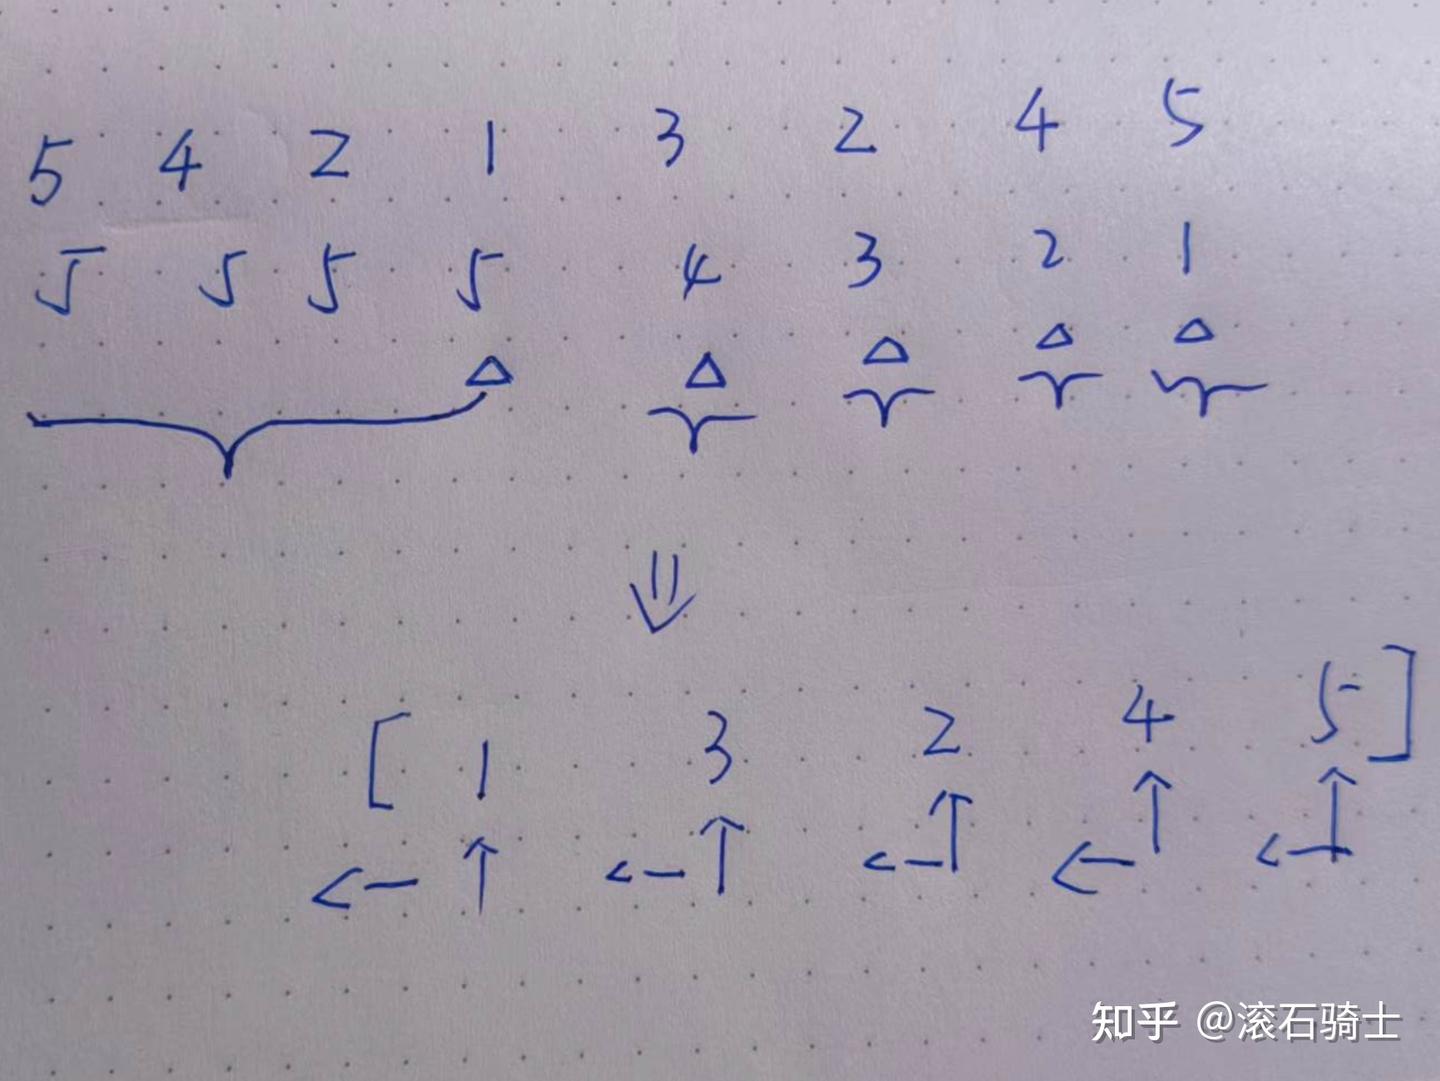 5 4 2 1 3 2 4 5
5 5 5 5 4 3 2 1
[ 1 3 2 4 5 ]
知乎 @滚石骑士